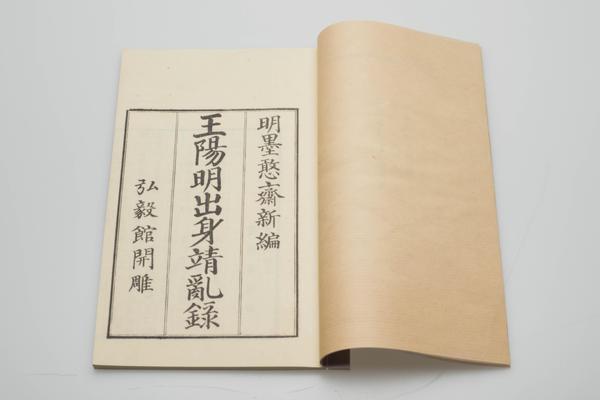 明墨憨齋新編
王陽明出身靖亂錄
弘毅館開雕